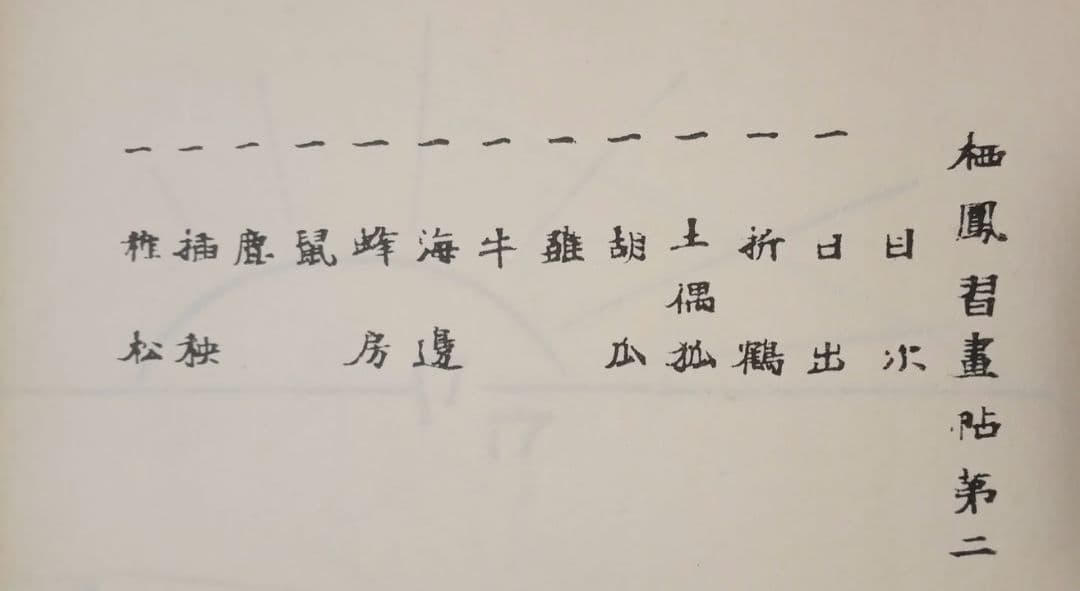 栖鳳習畫帖第二
目次
一日出
一折鶴
一土偶狐
一胡瓜
一雞
一牛
一海邊
一蜂房
一鼠
一鹿
一插秧
一稚松